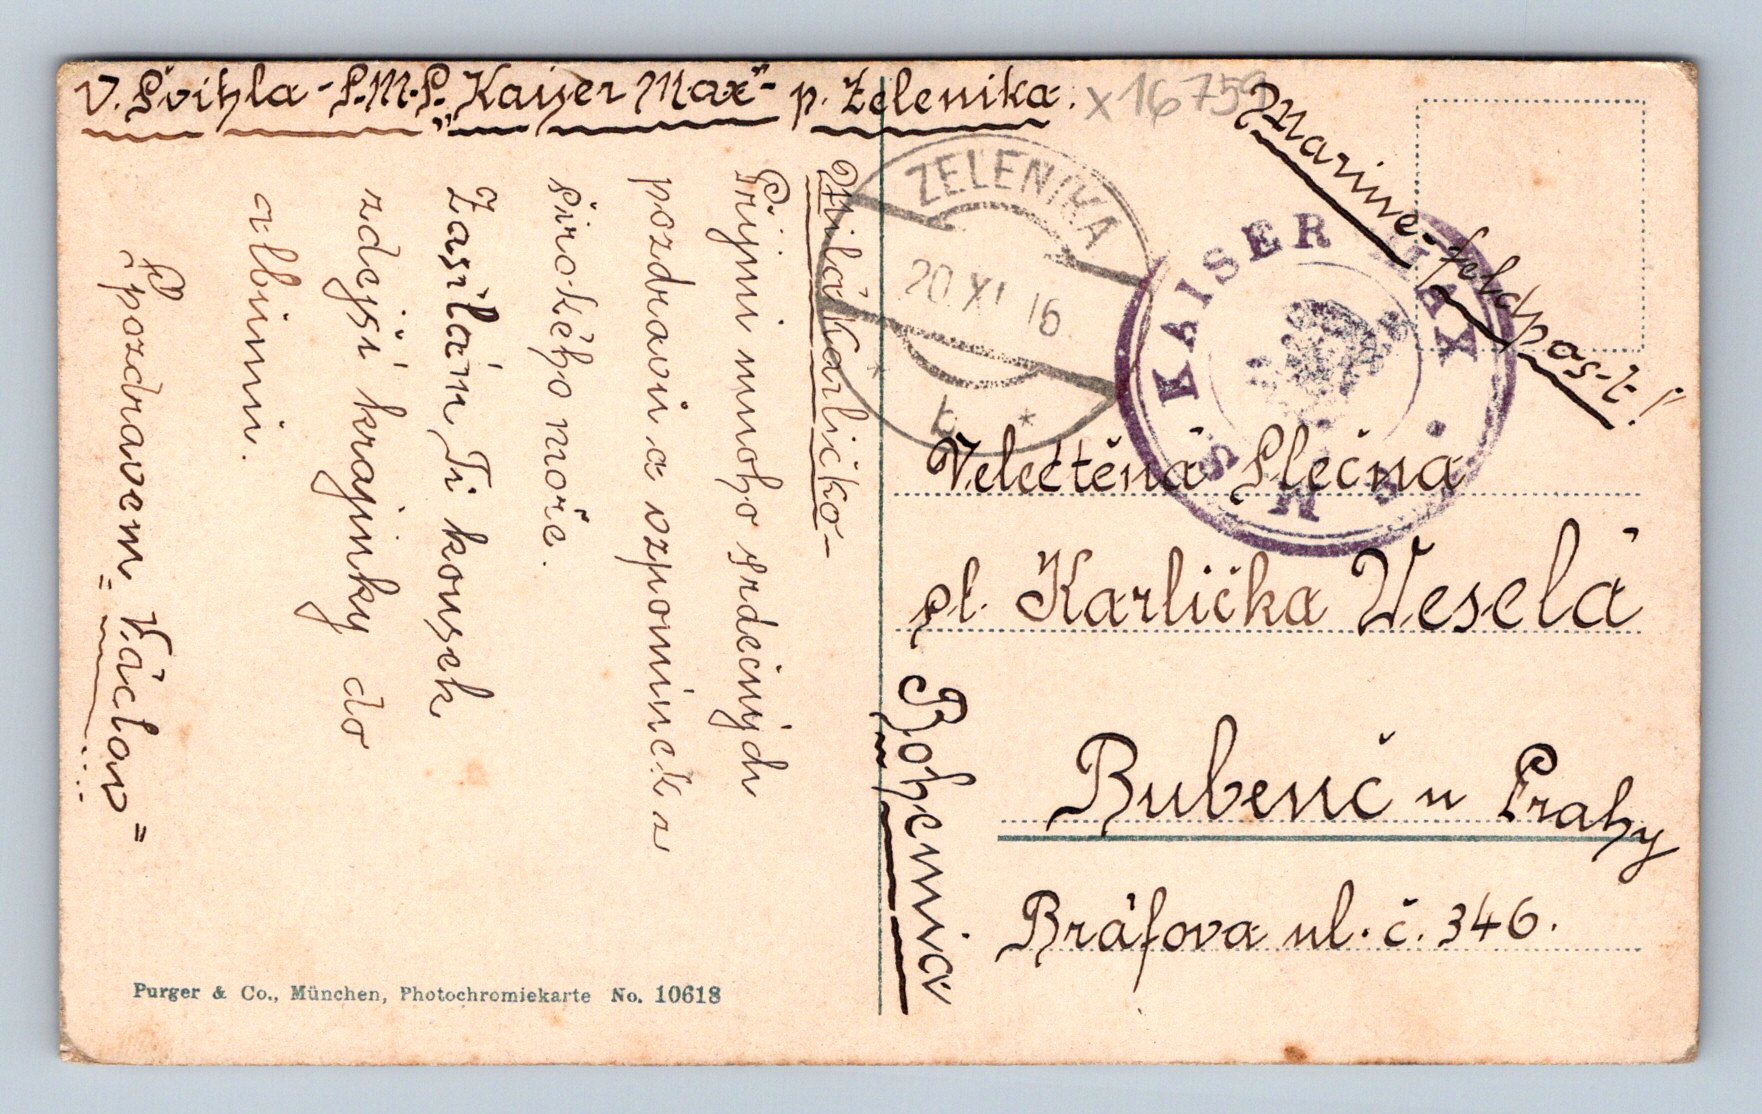 V. Švihla - S.M.S. „Kaiser Max" - p. Zelenika.
x 16759
Marine-feldpost!
ZELENIKA
20 XI 16
b
S. M. S. KAISER MAX
Milá Karličko -
Přijmi mnoho srdečných
pozdravů a vzpomínek z
širokého moře.
Zasílám Ti kousek
zdejší krajinky do
albumu.
S pozdravem
= Václav =
Velectěná Slečna
sl. Karlička Veselá
Bubeneč u Prahy
Bráfova ul. č. 346.
Bohemia
Purger & Co., München, Photochromiekarte No. 10618